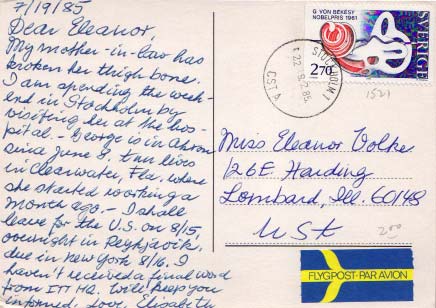 7/19/85
Dear Eleanor,
My mother-in-law has
broken her thigh bone.
I am spending the week-
end in Stockholm by
visiting her at the hos-
pital. - George is in Akron
since June 8. Ann lives
in Clearwater, Fla. where
she started working a
month ago. - I shall
leave for the U.S. on 8/15,
overnight in Reykjavik,
due in New York 8/16. I
haven't received a final word
from ITT HQ. Will keep you
informed. Love, Elizabeth
G VON BÉKÉSY
NOBELPRIS 1961
270
SVERIGE
STOCKHOLM 1
CST A
1521
Miss Eleanor Volke
126 E. Harding
Lombard, Ill. 60148
USA
200
FLYGPOST·PAR AVION